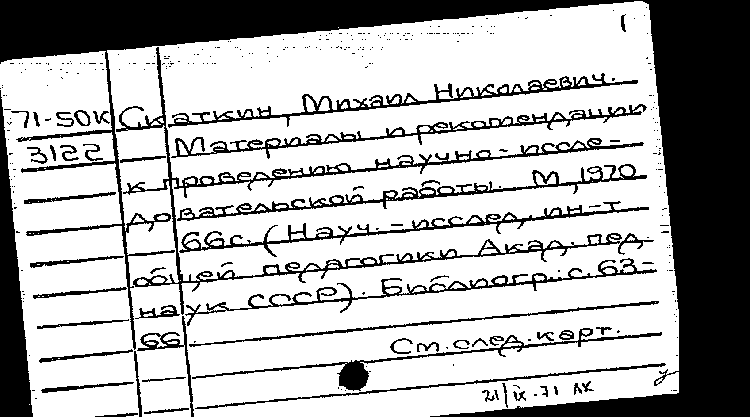 1
71-50К Скаткин, Михаил Николаевич.
3122 Материалы и рекомендации
к проведению научно-иссле-
довательской работы. М., 1970
66с. (Науч.-исслед. ин-т
общей педагогики Акад. пед.
наук СССР). Библиогр.: с. 63-
66.
См. след. карт.
21/IX-71 ЛК